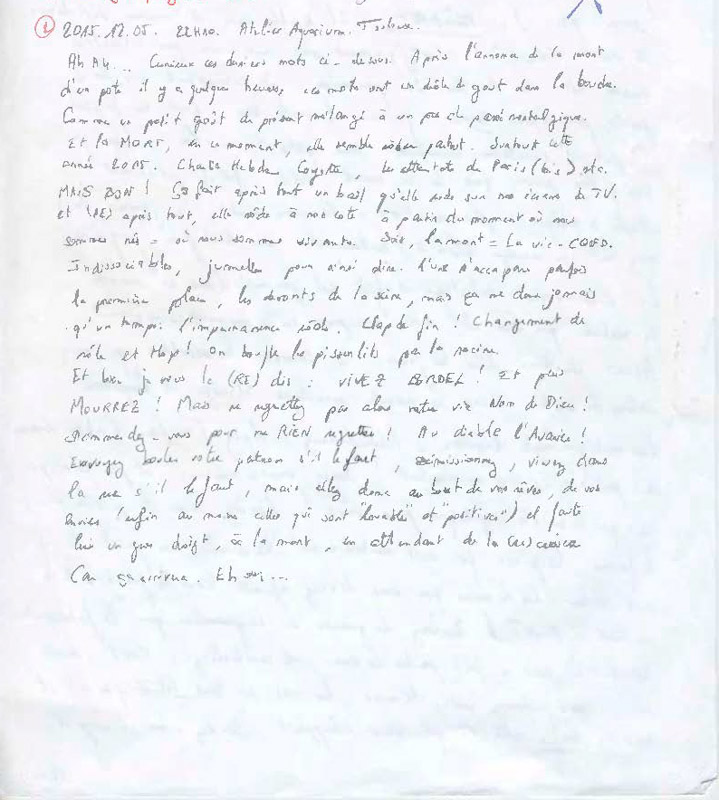 1 2015.12.05. 22H10. Atelier Aquarium. Toulouse.
Ah Ah... Curieux ces derniers mots ci-dessus. Après l'annonce de la mort
d'un pote il y a quelques heures, ces mots ont un drôle de gout dans la bouche.
Comme un petit goût de présent mélangé à un passé nostalgique.
Et la MORT, en ce moment, elle semble rôder partout. Surtout cette
année 2015. Charlie Hebdo, les attentats de Paris (bis) etc.
MAIS BON ! Ça fait après tout un bail qu'elle rode sur nos écrans de TV.
et (RE) après tout, elle rôde à nos côté à partir du moment où nous
sommes nés = où nous sommes vivants. Soit, la mort = La vie - CQFD.
Indissociables, jumelles pour ainsi dire. L'une s'accapare parfois
la première place, les devants de la scène, mais ça ne dure jamais
qu'un temps. L'impermanence rôde. Clap de fin ! Changement de
rôle et Hop ! On bouffe les pissenlits par la racine.
Et bien je vous le (RE) dis : VIVEZ BORDEL ! Et puis
MOURREZ ! Mais ne regrettez pas alors votre vie Nom de Dieu !
vous pour ne RIEN regretter ! Au diable l'Avarice !
Envoyez bouler votre patron s'il le faut, démissionnez, vivez dans
la rue s'il le faut, mais allez donc au bout de vos rêves, de vos
envies (enfin au moins celles qui sont "louables" et "positives") et faite
lui un gros doigt, à la mort, en attendant de la
Car ça arrivera. Eh oui...